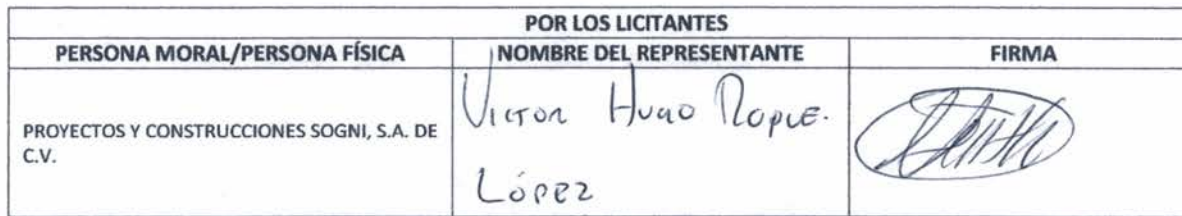 POR LOS LICITANTES
PERSONA MORAL/PERSONA FÍSICA NOMBRE DEL REPRESENTANTE FIRMA
PROYECTOS Y CONSTRUCCIONES SOGNI, S.A. DE
C.V.
VICTOR HUGO
LÓPEZ